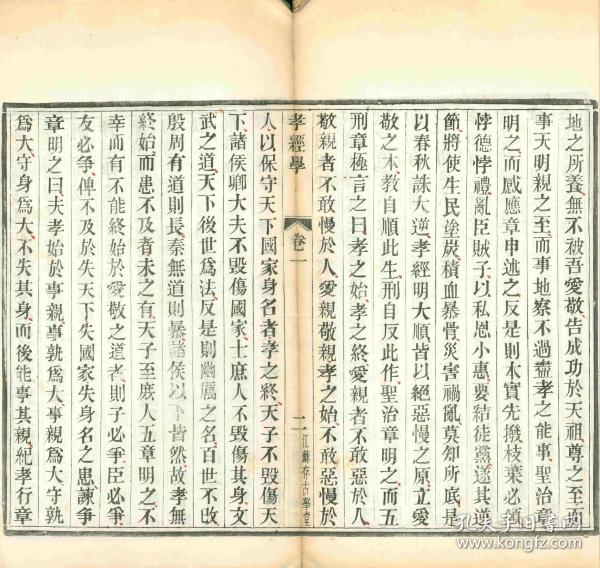 地之所養無不被吾愛敬告成功於天祖尊之至而
事天明親之至而事地察不過盡孝之能事聖治章
明之而感應章申述之反是則本實先撥枝葉必顛
悖德悖禮亂臣賊子以私恩小惠要結徒黨遂其逆
節將使生民塗炭積血暴骨災害禍亂莫知所底是
以春秋誅大逆孝經明大順皆以絕惡慢之原立愛
敬之本教自順此生刑自反此作聖治章明之而五
刑章極言之曰孝之始孝之終愛親者不敢惡於人
敬親者不敢慢於人愛親敬親孝之始不敢惡慢於
孝經學
卷一
二
江蘇存古學堂
人以保守天下國家身名者孝之終天子不毀傷天
下諸侯卿大夫不毀傷國家士庶人不毀傷其身文
武之道天下後世為法反是則幽厲之名百世不改
殷周有道則長秦無道則暴諸侯以下皆然故孝無
終始而患不及者未之有天子至庶人五章明之不
幸而有不能終始於愛敬之道者則子必爭臣必爭
友必爭俾不及於失天下失國家失身名之患諫爭
章明之曰夫孝始於事親事孰為大事親為大守孰
為大守身為大不失其身而後能事其親紀孝行章
孔夫子旧书网
www.kongfz.com